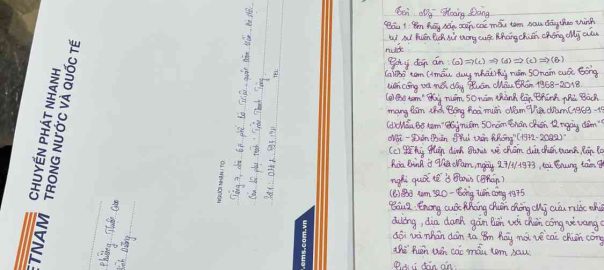 CHUYỂN PHÁT NHANH
TRONG NƯỚC VÀ QUỐC TẾ
ETNAM
NGƯỜI NHẬN: TO
ems.com.vn
Tên: Mỹ Hoàng Đăng
Câu 1: Em hãy sắp xếp các mẫu tem sau đây theo trình
tự sự kiện lịch sử trong cuộc kháng chiến chống Mỹ cứu
nước
Gợi ý đáp án: (a) => (c) => (d) => (c) => (B)
(a) Bộ tem (1 mẫu duy nhất) kỷ niệm 50 năm cuộc Tổng
tiến công và nổi dậy Xuân Mậu Thân 1968-2018
(e) Bộ tem "Kỷ niệm 50 năm thành lập Chính phủ Cách
mạng lâm thời Cộng hoà miền Nam Việt Nam (1969-19
(d) Mẫu bộ tem "Kỷ niệm 50 năm chiến 12 ngày đêm "
Nội - Điện Biên Phủ trên không" (1972-2022)"
(c) Lễ ký Hiệp định Paris về chấm dứt chiến tranh, lập lạ
hòa bình ở Việt Nam, ngày 27/1/1973, tại Trung tâm H
nghị quốc tế ở Paris (Pháp)
(b) Bộ tem 320 - Tổng tiến công 1975
Câu 2: Trong cuộc kháng chiến chống Mỹ cứu nước nhiề
đường, địa danh gắn liền với chiến công vẻ vang c
đội và nhân dân ta. Em hãy nói về các chiến công
thể hiện trên các mẫu tem sau
Gợi ý đáp án